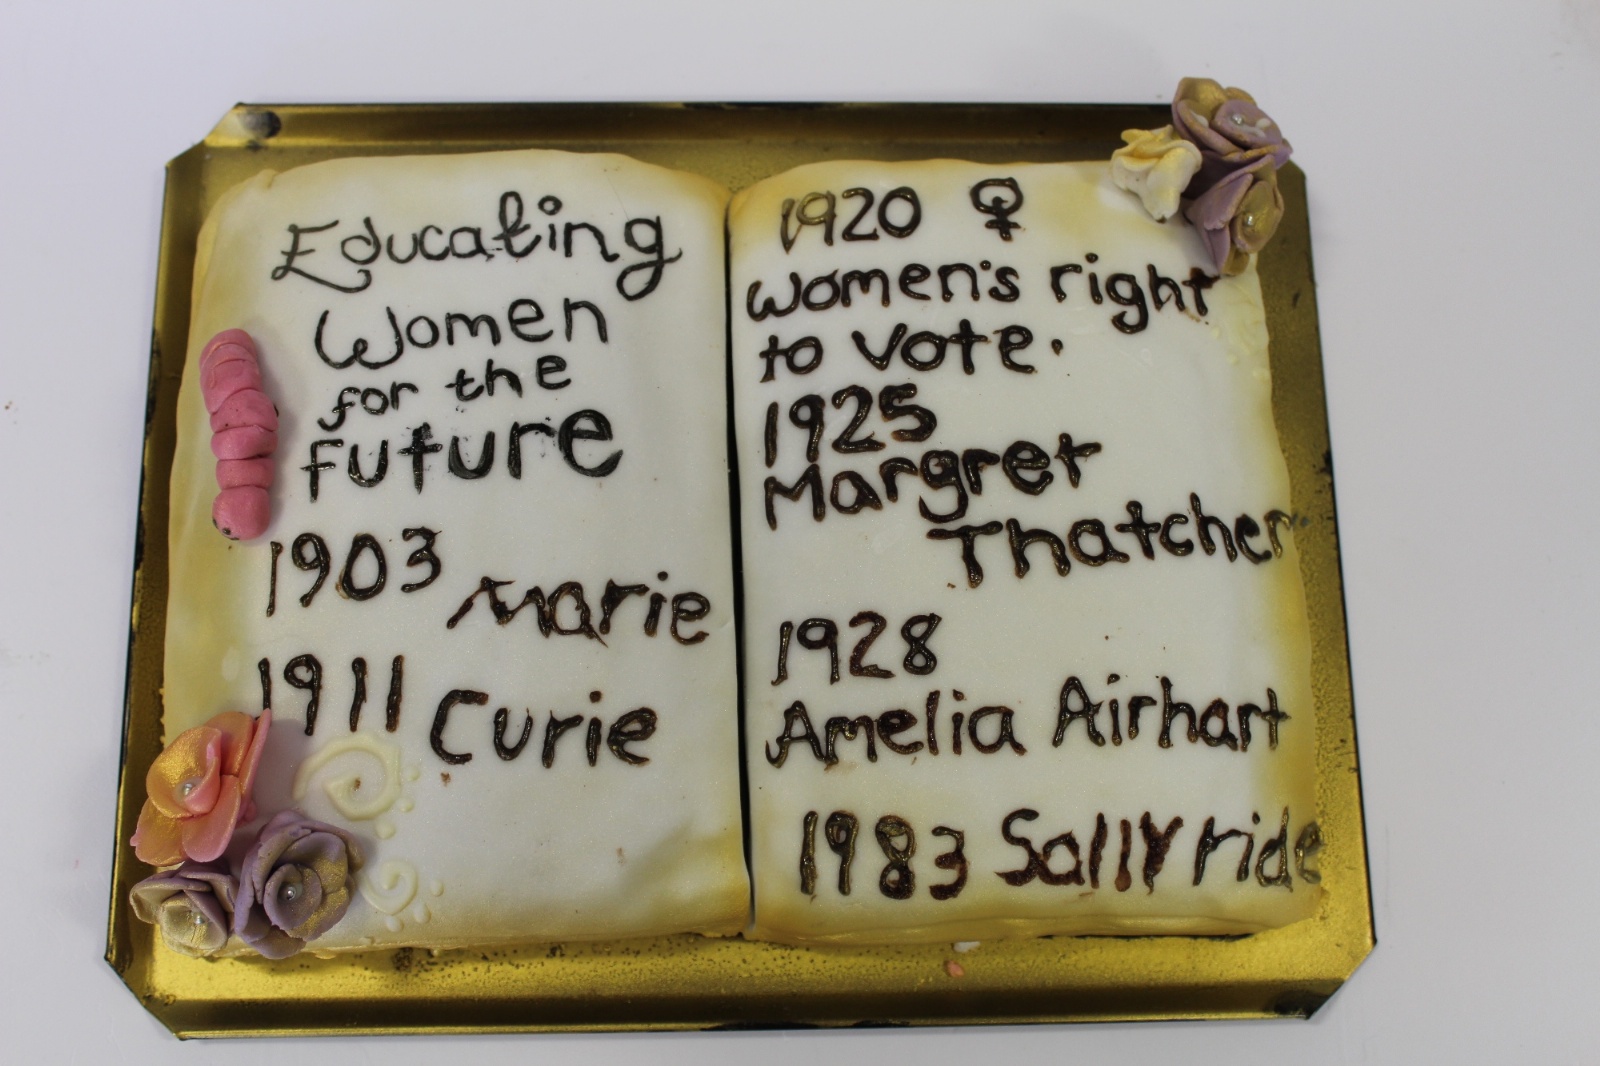 Educating
Women
for the
future
1903 Marie
1911 Curie
1920 ♀
Women's right
to Vote.
1925
Margret
Thatcher
1928
Amelia Airhart
1983 Sally ride